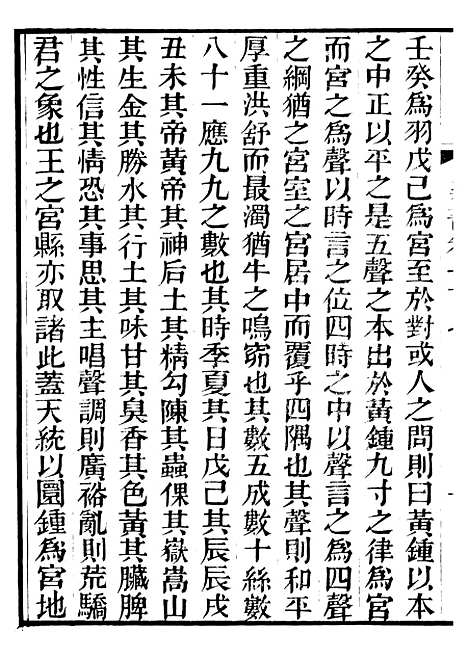 壬癸爲羽戊己爲宮至於對或人之問則曰黃鍾以本
之中正以平之是五聲之本出於黃鍾九寸之律爲宮
而宮之爲聲以時言之位四時之中以聲言之爲四聲
之綱猶之宮室之宮居中而覆乎四隅也其聲則和平
厚重洪舒而最濁猶牛之鳴窌也其數五成數十絲數
八十一應九九之數也其時季夏其日戊己其辰辰戌
丑未其帝黃帝其神后土其精勾陳其蟲倮其嶽嵩山
其生金其勝水其行土其味甘其臭香其色黃其臟脾
其性信其情恐其事思其主唱聲調則廣裕亂則荒驕
君之象也王之宮縣亦取諸此蓋天統以圜鍾爲宮地